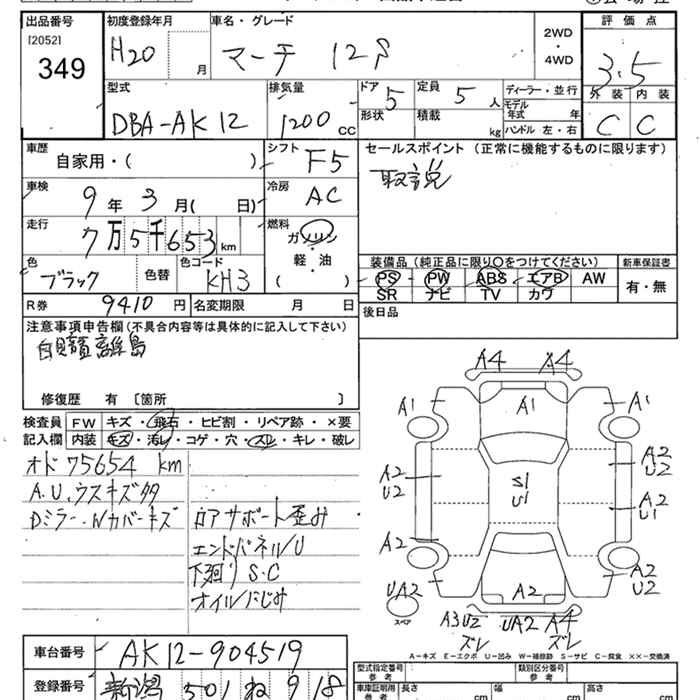 出品番号
[2052]
349
初度登録年月
H20
月
車名・グレード
マーチ 12S
2WD
・
4WD
評価点
3.5
外装 内装
C C
型式
DBA-AK12
排気量
1200 cc
ドア 5
形状
定員 5 人
積載 kg
ディーラー・並行
モデル
年式 年
ハンドル 左・右
車歴
自家用・( )
シフト F5
セールスポイント (正常に機能するものに限ります)
取説
車検
9年 3月( 日)
冷房 AC
走行
7万5千653km
燃料
ガソリン
・
軽・油
( )
色
ブラック
色替
色コード
KH3
装備品(純正品に限り○をつけてください)
PS・PW・ABS・エアB・AW
SR ナビ TV カワ
新車保証書
有・無
R券 9410円
名変期限 月 日
後日品
注意事項申告欄(不具合内容等は具体的に記入して下さい)
自賠責離島
修復歴 有 〔箇所 〕
検査員
記入欄
FW キズ・飛石・ヒビ割・リペア跡・×要
内装 キズ・汚レ・コゲ・穴・スレ・キレ・破レ
オド 75654 km
A.U.ウスキズ多
Dミラー.Wカバーキズ
ロアサポート歪み
エンドパネルU
下廻りS・C
オイルにじみ
A4 A4
A1 A1 A1
A2
U2
S1
U1
A2
U2
A2
U1
A2
A2
U2
UA2
スペア
A2
A3U2
ズレ
UA2
A4
ズレ
A-キズ E-エクボ U-凹み W-補修跡 S-サビ C-腐食 ××-交換済
車台番号 AK12-904519
登録番号 新潟 501 ね 918
型式指定番号
参考
類別区分番号
参考
車庫証明用
参考
長さ cm
幅 cm
高さ cm